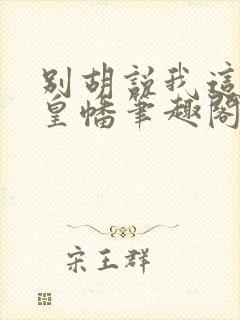 別胡說我這
皇幡筆趣閣
宋王群